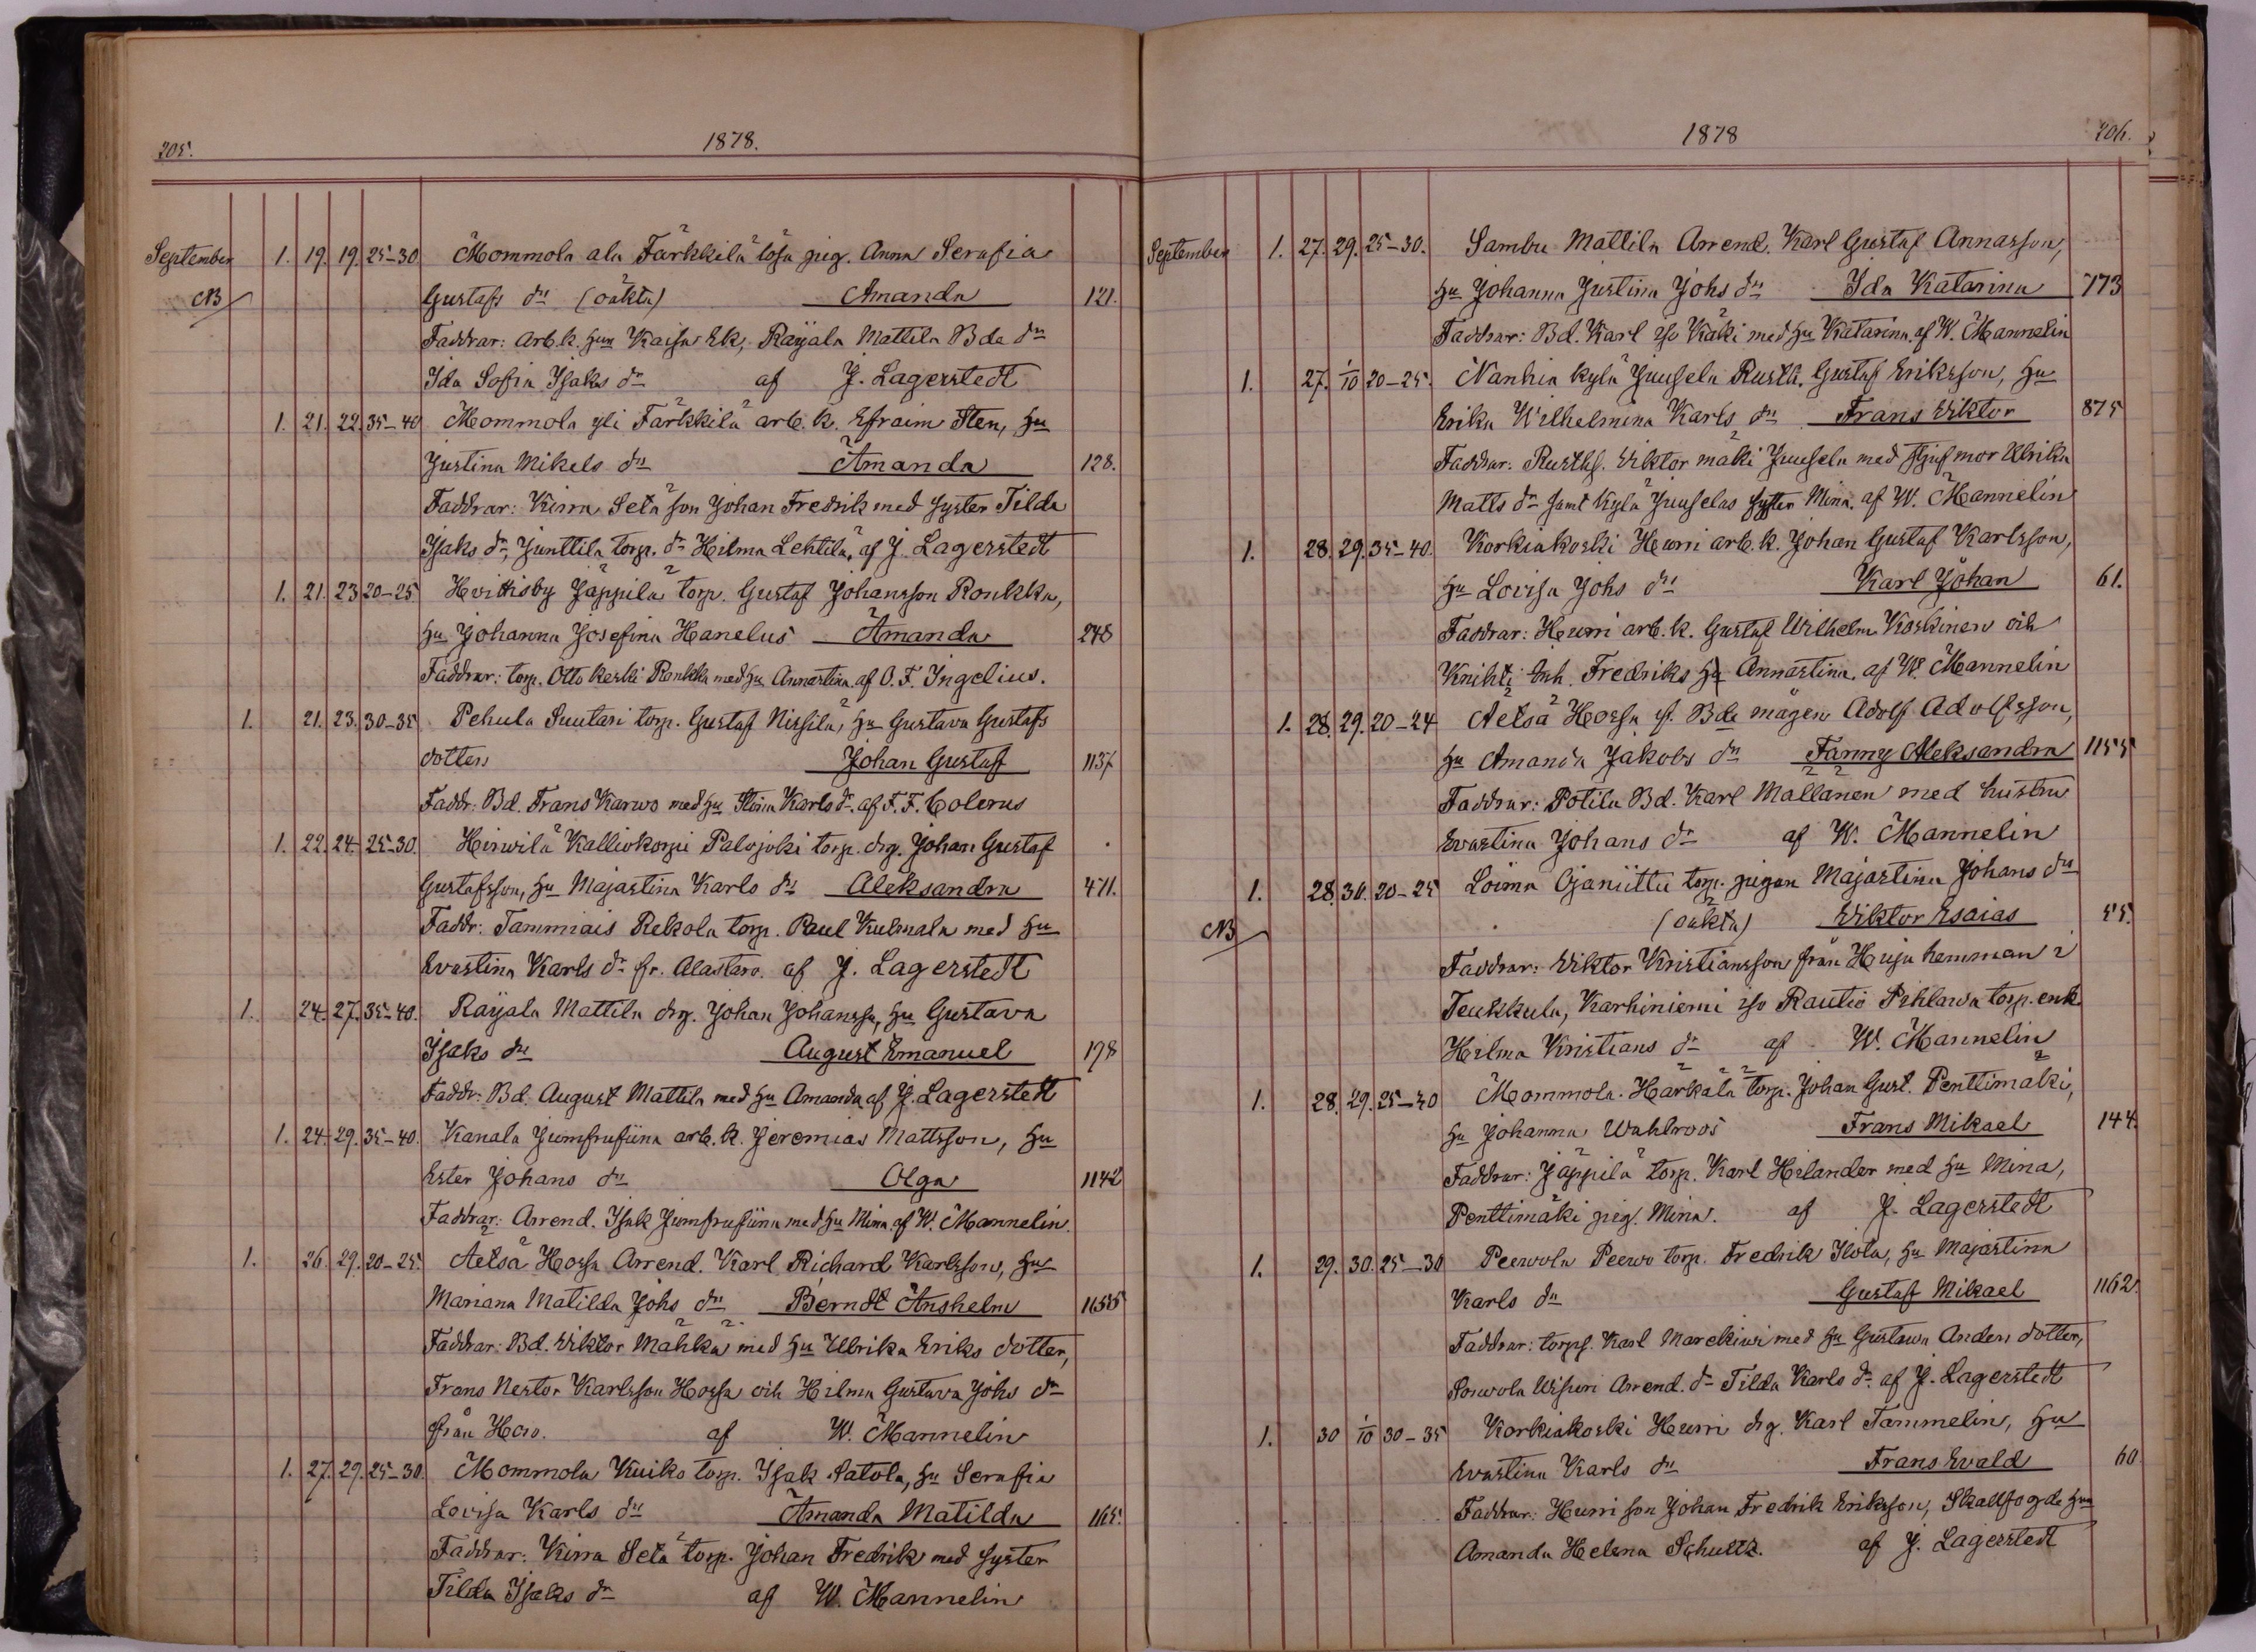 205.
1878.
September 1. 19. 19. 25–30 Mommola ala Färkkilä lösa pig. Anna Serafia
NB Gustafs dr (oäkta) Amanda 121.
Faddrar: Arb.k. hun Kaisa Ek, Räyala Mattila Bde dr
Ida Sofia Isaks dr af J. Lagerstedt
1. 21. 22. 35–40 Mommola yli Färkkilä arb. k. Efraim Sten, hu
Justina Mikels dr Amanda 128.
Faddrar: Kirra Setä son Johan Fredrik med syster Tilda
Isaks dr, Junttila torp. dr Hilma Lehtilä, af J. Lagerstedt
1. 21. 23 20–25. Hvittisby Jäppilä torp. Gustaf Johansson Ronkka,
hu Johanna Josefina Hanelus Amanda 248
Faddrar: torp. Otto Keski Ronkka med hu Annastina. af O. F. Ingelius.
1. 21. 23. 30–35 Pehula Suutari torp. Gustaf Nissilä, hu Gustava Gustafs
dotter Johan Gustaf 1137
Faddr: Bd. Frans Karwo med hu Stina Karls dr. af F. F. Colerus
1. 22. 24. 25–30. Hirwilä Kalliokorpi Palojoki torp. drg. Johan Gustaf
Gustafsson, hu Majastina Karls dr Aleksandra 471.
Faddr: Tammiais Rekola torp. Paul Kulmala med hu
Evastina Karls dr fr. Alastaro. af J. Lagerstedt
1. 24. 27. 35–40. Räyala Mattila drg. Johan Johansson, hu Gustava
Isaks dr August Emanuel 198
Faddr: Bd. August Mattila med hu Amanda af J. Lagerstedt
1. 24. 29. 35–40. Kanala Jumfrufiina arb. k. Jeremias Mattsson, hu
Ester Johans dr Olga 1142
Faddrar: Arrend. Isak Jumfrufiina med hu Mina. af W. Mannelin.
1. 26. 29. 20–25. Aetsä Hossa Arrend. Karl Richard Karlsson, hu
Mariana Matilda Johs dr Berndt Anshelm 1155
Faddrar: Bd. Viktor Mahkä med hu Ulrika Eriks dotter,
Frans Nestor Karlsson Hossa och Hilma Gustava Johs dr
från Haro. af W. Mannelin
1. 27. 29. 25–30. Mommola Kuiko torp. Isak Satola, hu Serafia
Lovisa Karls dr Amanda Matilda 165.
Faddrar: Kirra Setä torp. Johan Fredrik med syster
Tilda Isaks dr af W. Mannelin
1878
206.
September 1. 27. 29. 25–30. Sambu Mattila Arrend. Karl Gustaf Annasson,
hu Johanna Justina Johs dr Ida Katarina 773
Faddrar: Bd. Karl iso Käki med hu Katarina. af W. Mannelin
1. 27. 1/10 20–25. Nanhia kylä Juusela Rusth. Gustaf Eriksson, hu
Erika Wilhelmina Karls dr Frans Viktor 875
Faddrar: Rusths. Viktor mäki Juusela med stjufmor Ulrika
Matts dr samt Kylä Juuselas syster Mina. af W. Mannelin
1. 28. 29. 35–40. Korkiakoski Hurri arb. k. Johan Gustaf Karlsson,
hu Lovisa Johs dr Karl Johan 61.
Faddrar: Hurri arb. k. Gustaf Wilhelm Koskinen och
Knihti inh. Fredriks hu Annastina. af W. Mannelin
1. 28. 29. 20–24 Aetsä Hossa f. Bde mågen Adolf Adolfsson,
hu Amanda Jakobs dr Fanny Aleksandra 1155
Faddrar: Potila Bd. Karl Mällänen med hustru
Evastina Johans dr af W. Mannelin
1. 28. 30. 20–25 Loima Ojaniittu torp. pigan Majastina Johans dr
NB (oäkta) Viktor Esaias 55.
Faddrar: Viktor Kristiansson från Huju hemman i
Teukkula, Karhiniemi iso Rautio Pihlawa torp. enk.
Hilma Kristians dr af W. Mannelin
1. 28. 29. 25–30 Mommola Härkälä torp. Johan Gust. Penttimäki,
hu Johanna Wahlroos Frans Mikael 144.
Faddrar: Jäppilä torp. Karl Hilander med hu Mina,
Penttimäki pig. Mina. af J. Lagerstedt
1. 29. 30. 25–30 Peewola Peewo torp. Fredrik Ilola, hu Majastina
Karls dr Gustaf Mikael 1162.
Faddrar: torps. Karl Mareckiwi med hu Gustava Anders dotter,
Sorwola Uisuri Arrend. dr Tilda Karls dr. af J. Lagerstedt
1. 30 1/10 30–35 Korkiakoski Hurri drg. Karl Tammelin, hu
Evastina Karls dr Frans Evald 60
Faddrar: Hurri son Johan Fredrik Eriksson, Skallfogde hun
Amanda Helena Schultz. af J. Lagerstedt